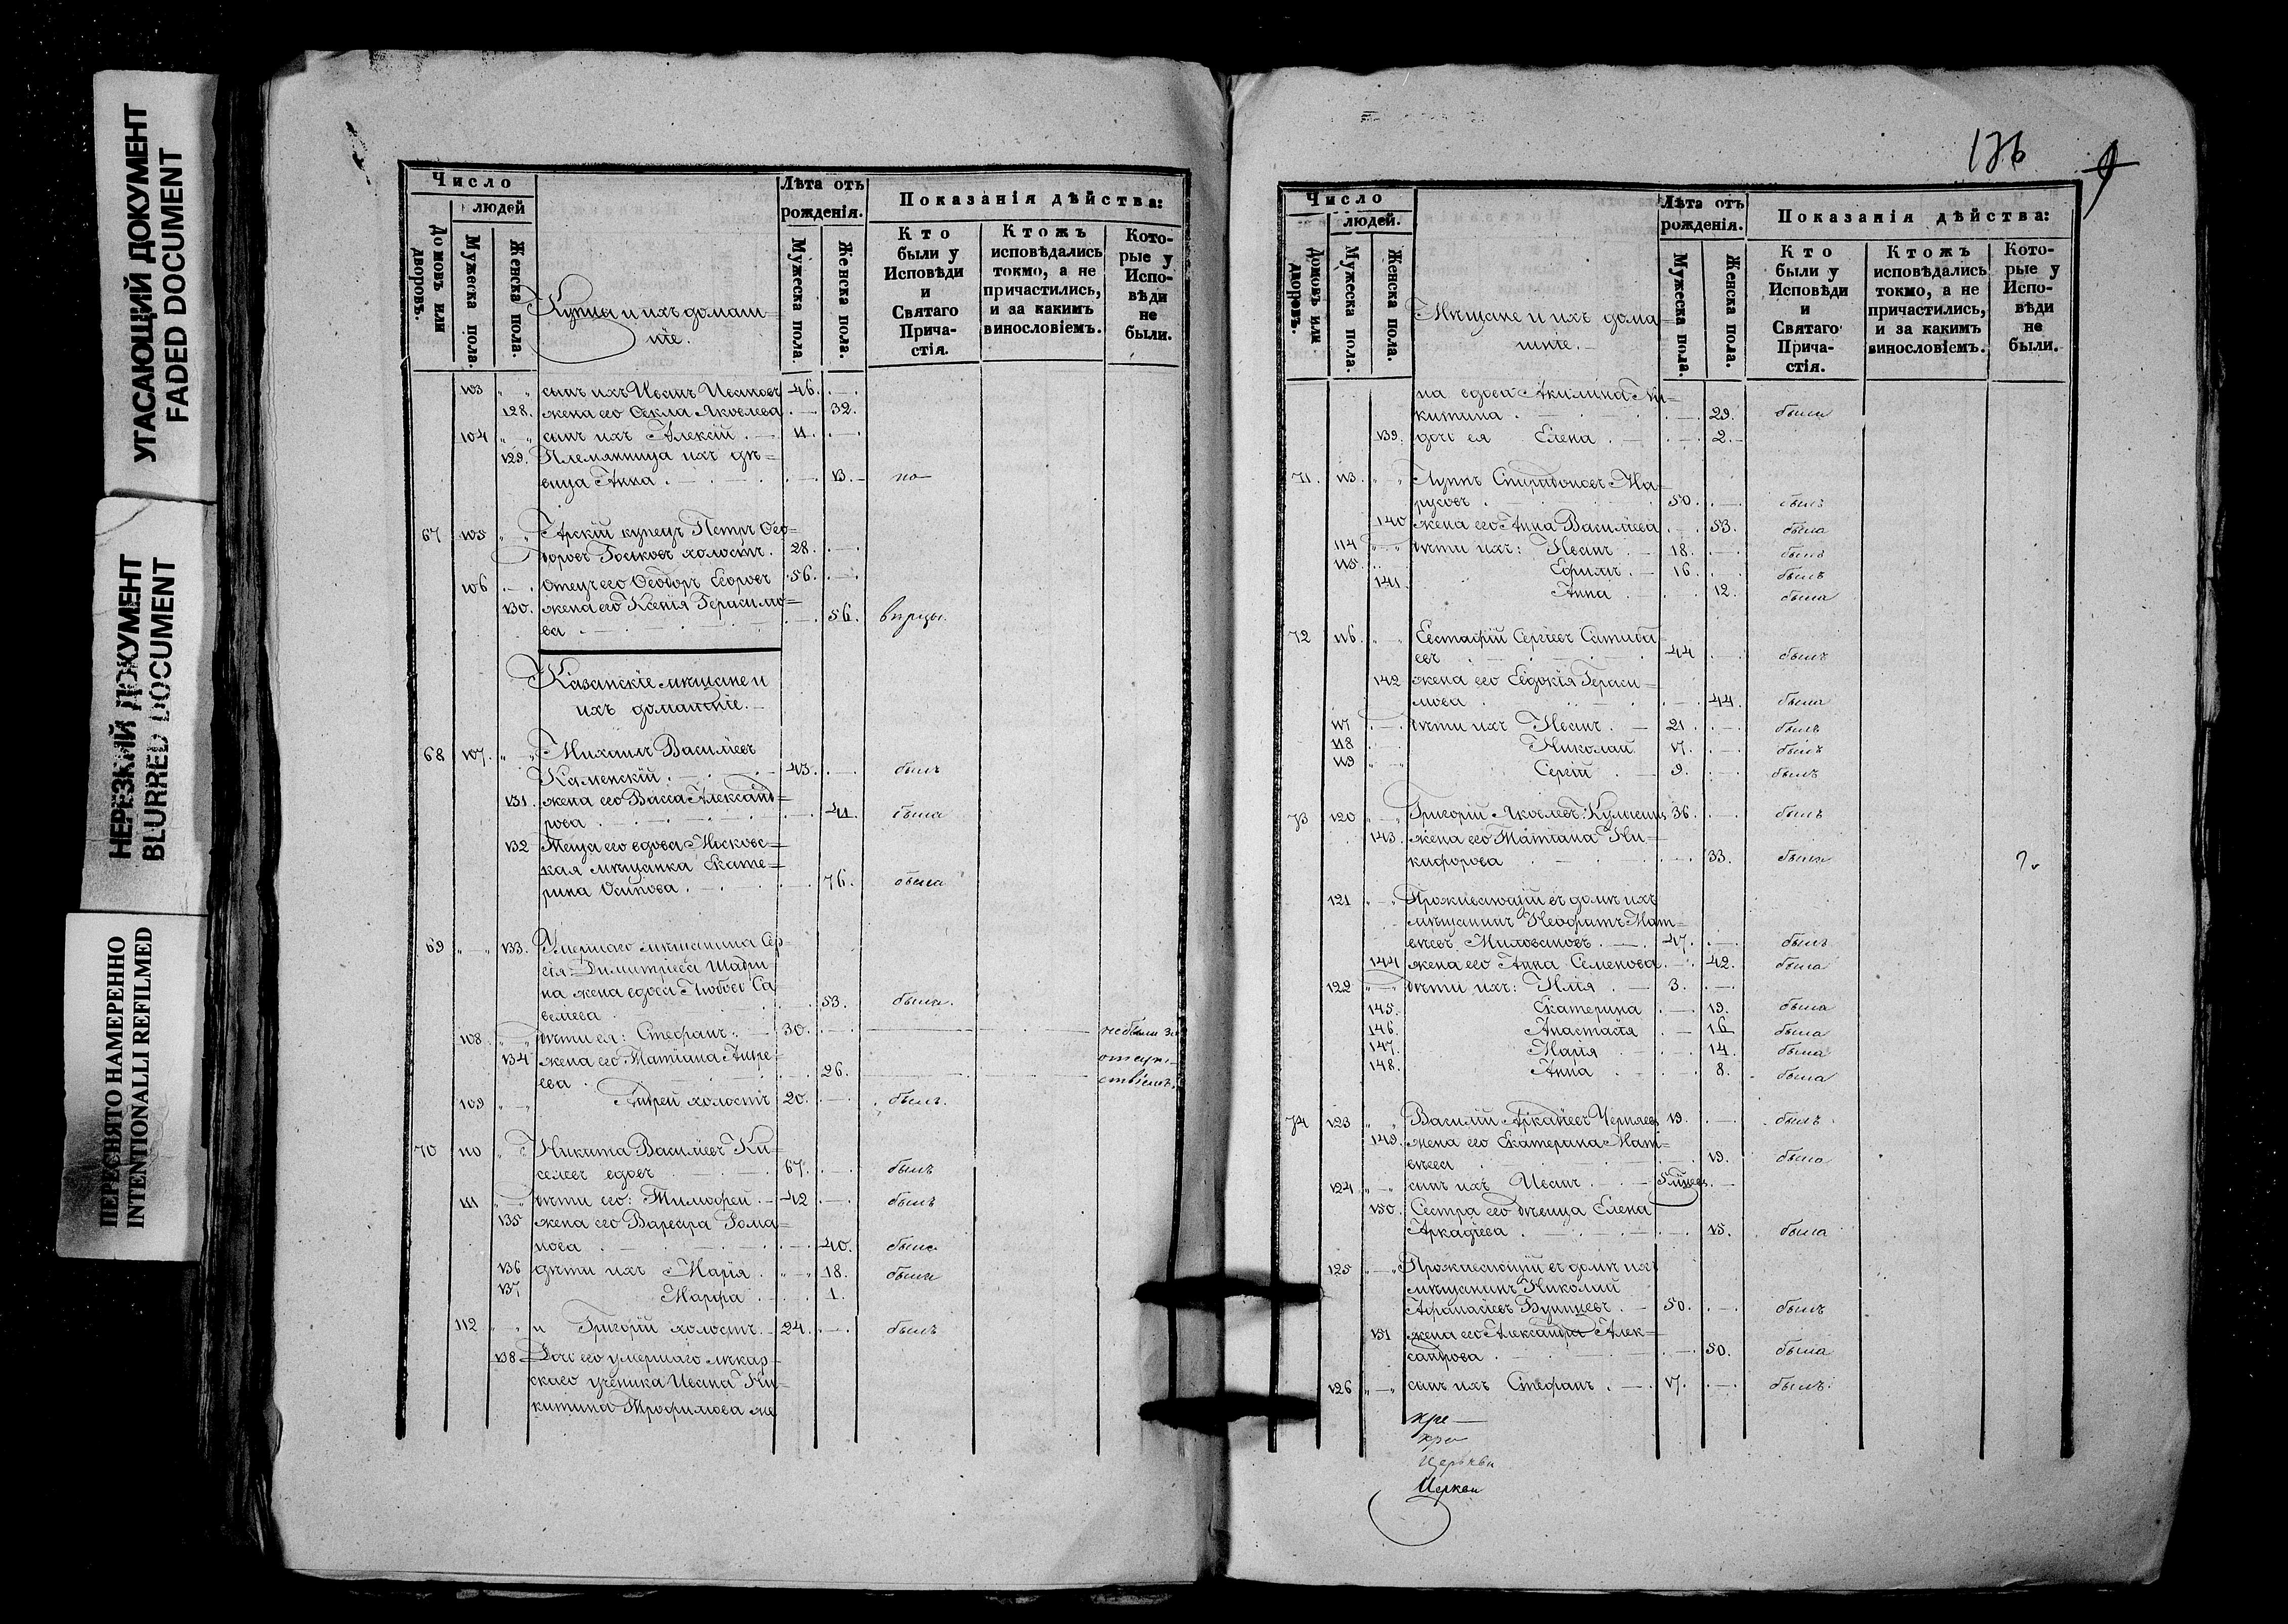 УГАСАЮЩИЙ ДОКУМЕНТ
FADED DOCUMENT
НЕРЕЗКИЙ ДОКУМЕНТ
BLURRED DOCUMENT
ПЕРЕСНЯТО НАМЕРЕННО
INTENTIONALLI REFILMED
Число
людей
Домовъ или дворовъ.
Мужеска пола.
Женска пола.
Купцы и ихъ домаш=
ніе.
Лѣта отъ
рожденія.
Мужеска пола.
Женска пола.
Показанія дѣйства:
Кто
были у
Исповѣди
и
Святаго
Прича-
стія.
Ктожъ
исповѣдались
токмо, а не
причастились,
и за какимъ
винословіемъ.
Кото-
рые у
Испо-
вѣди
не
были.
103 сынъ ихъ Иванъ Ивановъ 46.
128. жена его Фекла Яковлева 32.
104 сынъ ихъ Алексій 11.
129. Племянница ихъ дѣ=
вица Анна 13.
67 105 Арскій купецъ Петръ Ѳео=
доровъ холостъ. 28.
106 Отецъ его Ѳеодоръ Егоровъ 56.
130. жена его Ксенія Герасимо=
ва 56.
Казанскіе мѣщане и
ихъ домашніе.
68 107. Михаилъ Васильевъ
Каменскій 43. былъ
131. жена его Васса Александ=
рова 41. была
132 Теща его вдова Московс=
кая мѣщанка Екате=
рина Осипова 76. была
69 133. Умершаго мѣщанина Сер=
гія Димитріева Шадри=
на жена вдова Любовь Са=
вельева 53. была.
108 дѣти ея: Стефанъ 30. не были за
134 жена его Татіана Андре= отсут=
ева 26. ствіемъ.
109 Андрей холостъ 20. былъ.
70 110 Никита Васильевъ Ки=
селевъ вдовъ 67. былъ
111 дѣти его: Тимофей 42 былъ
135 жена его Варвара Рома=
нова 40. была
136 дѣти ихъ Марія 18. была
137. Марфа 1.
112 и Григорій холостъ. 24. былъ
138 Дочь его умершаго лекар=
скаго ученика Ивана Ни=
китина Трофимова же
136
9
Число
людей.
Домовъ или дворовъ.
Мужеска пола.
Женска пола.
Мѣщане и ихъ дома=
шніе.
Лѣта отъ
рожденія.
Мужеска пола.
Женска пола.
Показанія дѣйства:
Кто
были у
Исповѣди
и
Святаго
Прича-
стія.
Ктожъ
исповѣдались
токмо, а не
причастились,
и за какимъ
винословіемъ.
Кото-
рые у
Испо-
вѣди
не
были.
на вдова Акилина Ни=
китина 29. была
139. дочь ея Елена 2.
71. 113. Спиридоновъ Ма=
50. былъ
140 жена его Анна Васильева 53. была
114 дѣти ихъ: Иванъ 18. былъ
115. Ефимъ 16. былъ
141. Анна 12. была
72 116. Евстафій Сергіевъ
евъ 44 былъ
142 жена его Евдокія Гераси=
мова 44. была
117 дѣти ихъ Иванъ 21. былъ
118 Николай 17. былъ
119 Сергій 9. былъ
73 120 Григорій Яковлевъ 36. былъ
143. жена его Татіана Ни=
кифорова 33. была
121 Проживающій въ домѣ ихъ
мѣщанинъ Неофитъ Мат=
вѣевъ Миловановъ 47. былъ
144 жена его Анна Семенова 42. была
122 дѣти ихъ: Илія 3.
145. Екатерина 19. была
146. Анастасія 16 была
147. Марія 14. была
148. Анна 8. была
74 123 Василій Аркадіевъ Черняевъ 19. былъ
149. жена его Екатерина Мат=
вѣева 19. была
124 сынъ ихъ Иванъ
150. Сестра его дѣвица Елена
Аркадіева 15. была
125 Проживающій въ домѣ ихъ
мѣщанинъ Николай
Афанасіевъ 50. былъ
151 жена его Александра Алек=
сандрова 50. была
126 сынъ ихъ Стефанъ 17. былъ.
Церкви
Церкви